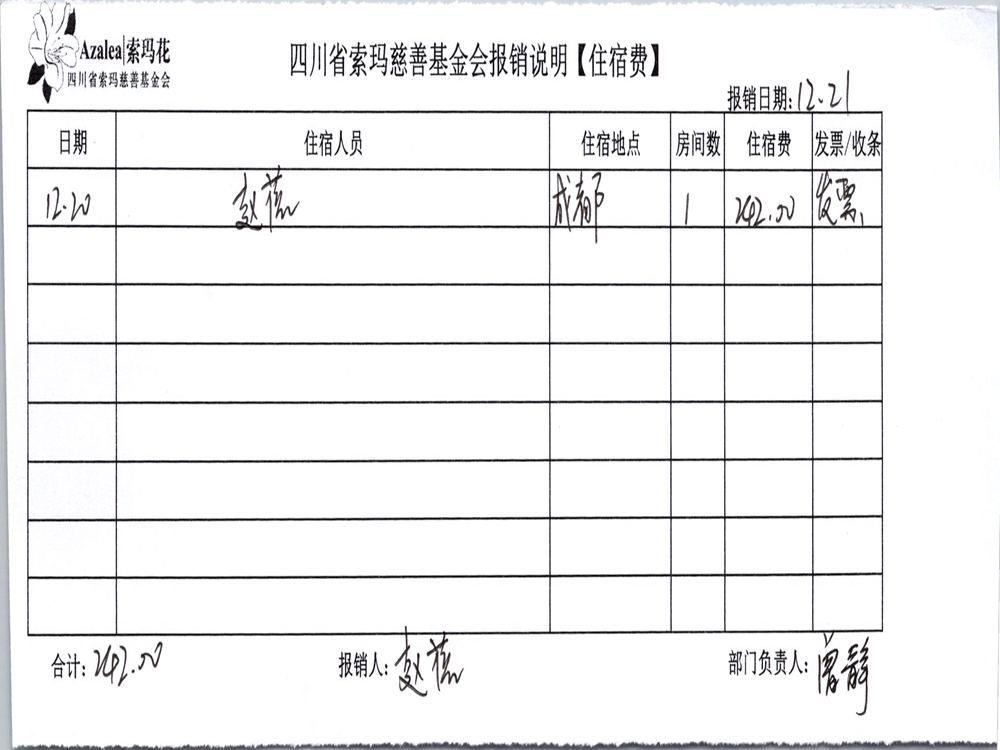 Azalea|索玛花
四川省索玛慈善基金会
四川省索玛慈善基金会报销说明【住宿费】
报销日期：12.21
日期 住宿人员 住宿地点 房间数 住宿费 发票/收条
12.20 赵 成都 1 242.00 发票
合计：242.00 报销人：赵 部门负责人：静